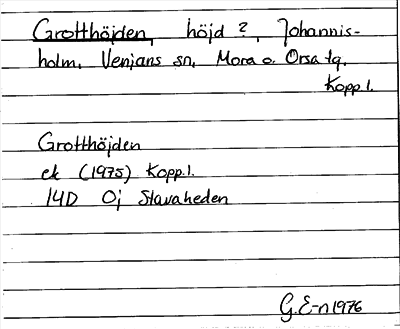 Grotthöjden, höjd ?, Johannis-
holm, Venjans sn, Mora o. Orsa tg,
Kopp l.
Grotthöjden
ek (1975) Kopp. l.
14D 0j Stavaheden
G. E-n 1976